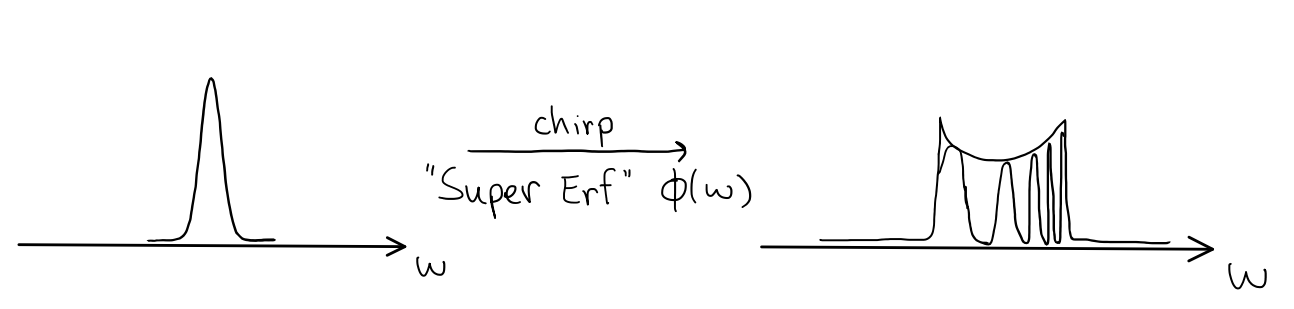 chirp
"Super Erf" ϕ(ω)
ω
ω